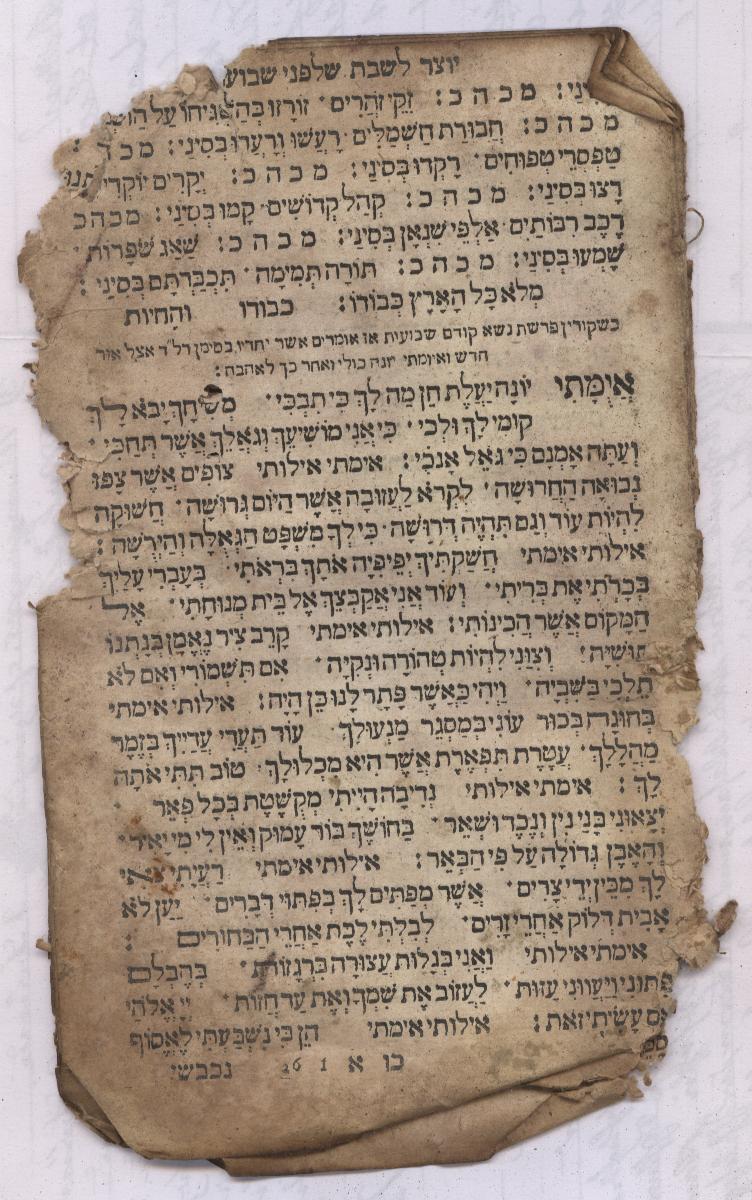 יוצר לשבת שלפני שבוע
מכהכ: זַקֵי זֹהֲרִים׳ זוֹרְזוּ
מכהכ: חֲבוּרַת חַשְׁמַלִּים׳ רָעֲשׁוּ וְרָעֲדוּ בְּסִינַי: מכד
טַפְסְרֵי טְפוּחִים׳ רָקְדוּ בְּסִינַי: מכהכ: יְקָרִים
רָצוּ בְּסִינַי: מכהכ: קְהַל קְדוֹשִׁים׳ קָמוּ בְּסִינַי: מכהכ
רֶכֶב רִבּוֹתַיִם׳ אַלְפֵי שִׁנְאָן בְּסִינַי: מכהכ: שַׁאַג שֹׁפָרוֹת׳
שָׁמְעוּ בְּסִינַי: מכהכ: תּוֹרָה תְּמִימָה׳ תִּכְבַּרְתָּם בְּסִינַי:
מְלֹא כָּל הָאָרֶץ כְּבוֹדוֹ: כבודו והחיות
כשקורין פרשת נשא קודם שבועית אז אומרים אשר יחדיו בסימן רל״ד אצל אור
חדש ואיומתי יונה כולי ואחר כך לאהבת:
אֲיֻמָּתִי יוֹנָה יַעֲלַת חֵן מַה לָּךְ כִּי תִבְכִּי׳ מְשִׁיחֵךְ יָבֹא לָךְ
קוּמִי לָךְ וּלְכִי׳ כִּי אֲנִי מוֹשִׁיעֵךְ וְגֹאֲלֵךְ אֲשֶׁר תְּחַכִּי׳
וְעַתָּה אָמְנָם כִּי גֹאֵל אָנֹכִי: אימתי אילותי צוֹפִים אֲשֶׁר צָפוּ
נְבוּאָה הַחֲרוּשָׁה׳ לִקְרֹא לַעֲזוּבָה אֲשֶׁר הַיּוֹם גְּרוּשָׁה׳ חֲשׁוּקָה
לִהְיוֹת עוֹד וְגַם תִּהְיֶה דְרוּשָׁה׳ כִּי לְךָ מִשְׁפַּט הַגְּאֻלָּה וְהַיְרֻשָּׁה:
אילותי אימתי חֲשַׁקְתִּיךְ יְפֵיפִיָּה אֹתָךְ בִּרְאֹתִי׳ בְּעָבְרִי עָלַיִךְ
בְּכָרְתִי אֶת בְּרִיתִי׳ וְעוֹד אֲנִי אֲקַבְּצֵךְ אֶל בֵּית מְנוּחָתִי׳ אֶל
הַמָּקוֹם אֲשֶׁר הֲכִינוֹתִי: אילותי אימתי קָרֵב צִיר נֶאֱמָן בְּנָתְנוֹ
תּוּשִׁיָּה׳ וְצִוַּנִי לִהְיוֹת טְהוֹרָה וּנְקִיָּה׳ אִם תִּשְׁמוֹרִי וְאִם לֹא
תֵּלְכִי בַּשִּׁבְיָה׳ וַיְהִי כַּאֲשֶׁר פָּתַר לָנוּ כֵּן הָיָה: אילותי אימתי
בְּכוּר עוֹנִי בְּמַסְגֵּר מַנְעוּלֵךְ׳ עוֹד תַּעֲדִי עֶדְיֵיךְ בְּזֶמֶר
מַהֲלָלֵךְ׳ עֲטֶרֶת תִּפְאֶרֶת אֲשֶׁר הִיא מִכְלוּלֵךְ׳ טוֹב תִּתִּי אֹתָהּ
לָךְ: אימתי אילותי נְדִיבָה הָיִיתִי מְקֻשֶּׁטֶת בְּכָל פְּאֵר׳
יְצָאוּנִי בָּנַי נִין וָנֶכֶד וּשְׁאֵר׳ בַּחוֹשֶׁךְ בּוֹר עָמוֹק וְאֵין לִי מִי יָאִיר׳
וְהָאֶבֶן גְּדוֹלָה עַל פִּי הַבְּאֵר: אילותי אימתי רַעְיָתִי
לָךְ מִבֵּין יְדֵי צָרִים׳ אֲשֶׁר מְפַתִּים לָךְ בְּפִתּוּי דְּבָרִים׳ יַעַן לֹא
אָבִית דְלוֹק אַחֲרֵי זָרִים׳ לְבִלְתִּי לֶכֶת אַחֲרֵי הַבַּחוּרִים:
אימתי אילותי וַאֲנִי בְּגָלוּת עֲצוּרָה בְּרָגְזוֹת׳ בְּהֶבְלָם
פִּתּוּנִי וַיְעַוּוּנִי עַזּוּת׳ לַעֲזוֹב אֶת שִׁמְךָ וְאֶת עַד חָזוּת׳ יְיָ אֱלֹהַי
אִם עָשִׂיתִי זֹאת: אילותי אימתי הֵן כִּי נִשְׁבַּעְתִּי לֶאֱסוֹף
כו א 1 26 נכבשי